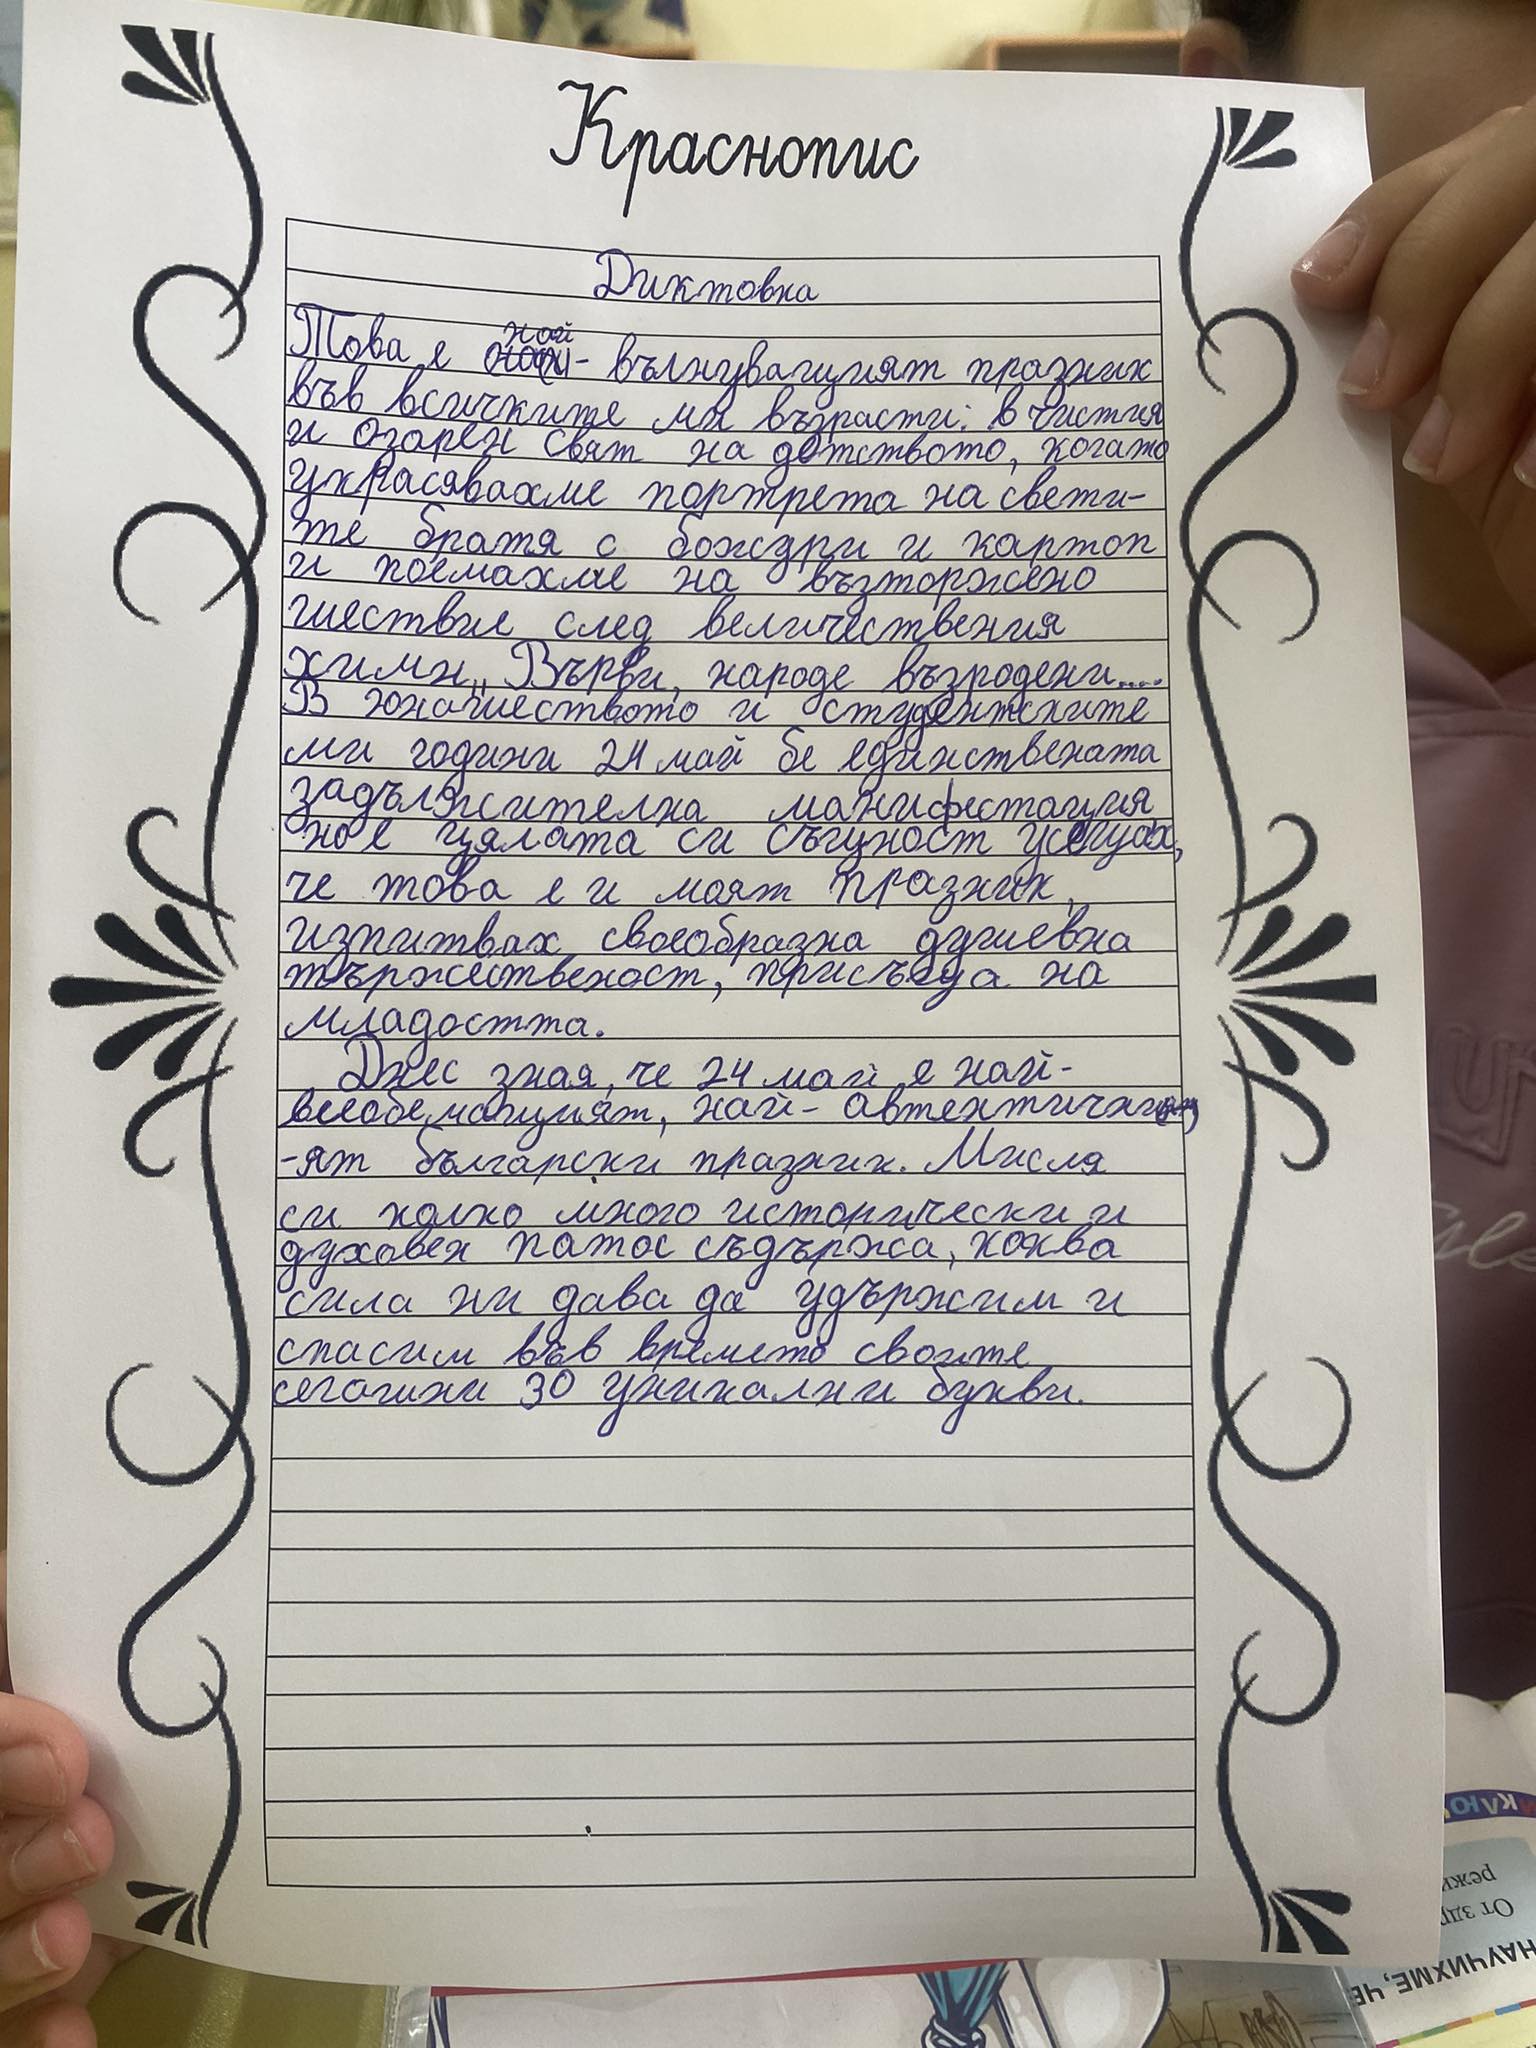 Краснопис
Диктовка
Това е най - вълнуващият празник
във всичките ми възрасти: в чистия
и озарен свят на детството, когато
украсявахме портрета на свети-
те братя с божури и картон
и поемахме на възторжено
шествие след величествения
химн „ Върви, народе възродени....
В юношеството и студентските
ми години 24 май бе единствената
задължителна манифестация
но е цялата си същност усещах,
че това е и моят празник,
изпитвах своеобразна душевна
тържественост, присъща на
младостта.
Днес зная, че 24 май е най-
всеобемащият, най - автентични
-ят български празник. Мисля
си колко много исторически и
духовен патос съдържа, каква
сила ни дава да удържим и
спасим във времето своите
сегашни 30 уникални букви.
КЛЮ
режи
От здр
НАУЧИХМЕ, ЧЕ